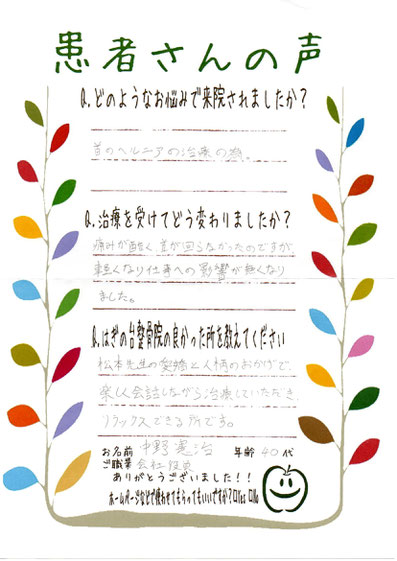 患者さんの声
Q.どのようなお悩みで来院されましたか?
首のヘルニアの治療の為。
Q.治療を受けてどう変わりましたか?
痛みが酷く首が回らなかったのですが
軽くなり仕事への影響が無くなり
ました。
Q.はぎの台整骨院の良かった所を教えてください
松本先生の 人柄のおかげで、
楽しく会話しながら治療していただき、
リラックスできる所です。
お名前 中野憲治 年齢 40代
ご職業 会社役員
ありがとうございました!!
ホームページなどで使わせてもらってもいいですか?□Yes □No